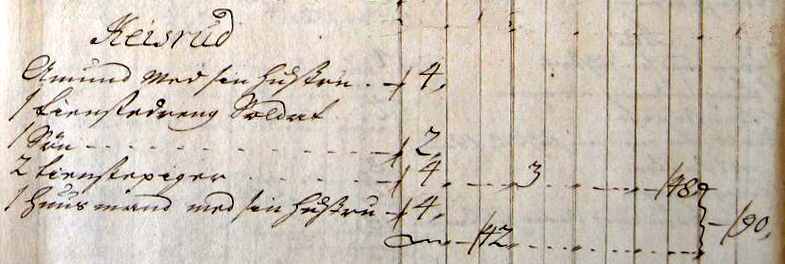 Keisrud
Amund Med sin Hustru - 4,
1 tienstedreng Soldat
1 Søn - 2,
2 tienstepiger - 4, 3
1 Huusmand med sin Hustru - 4,